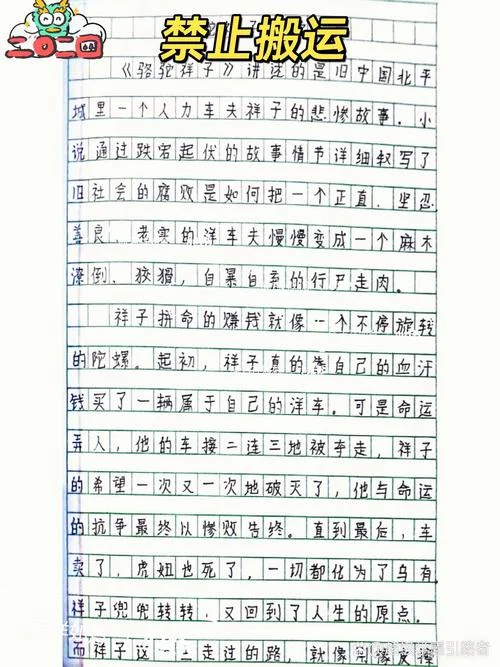 二〇二四
禁止搬运
《骆驼祥子》讲述的是旧中国北平
城里一个人力车夫祥子的悲惨故事。小
说通过跌宕起伏的故事情节详细叙写了
旧社会的腐败是如何把一个正直、坐忍
善良、老实的洋车夫慢慢变成一个麻木
潦倒、狡猾，自暴自弃的行尸走肉。
祥子拼命的赚钱就像一个不停旋转
的陀螺。起初，祥子真的靠自己的血汗
钱买了一辆属于自己的洋车。可是命运
弄人，他的车接二连三地被夺走，祥子
的希望一次又一次地破灭了，他与命运
的抗争最终以惨败告终。直到最后，车
卖了，虎妞也死了，一切都化为了乌有
祥子兜兜转转，又回到了人生的原点。
而祥子这一生走过的路，就像用像皮擦